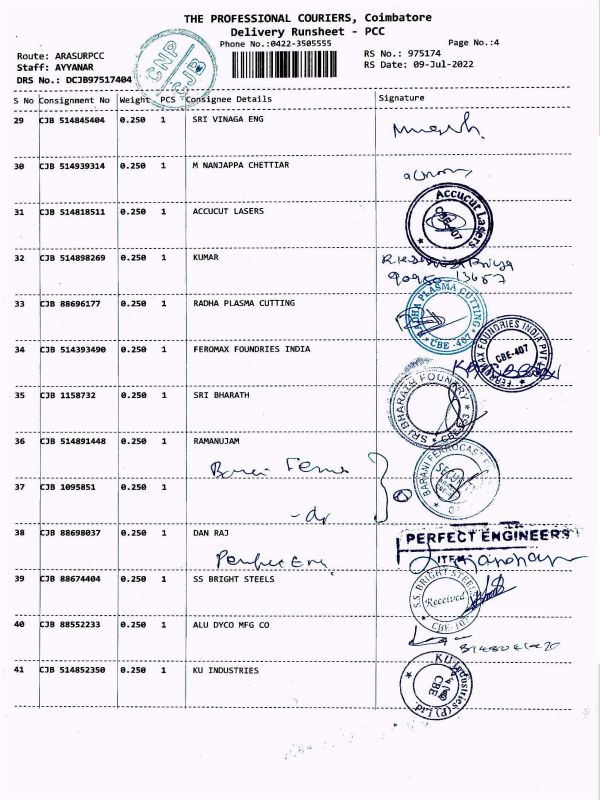 THE PROFESSIONAL COURIERS, Coimbatore
Delivery Runsheet - PCC
Phone No.:0422-3505555
Page No.:4
Route: ARASURPCC
RS No.: 975174
Staff: AYYANAR
RS Date: 09-Jul-2022
DRS No.: DCJB97517404
CNP
CJB
S No Consignment No Weight PCS Consignee Details Signature
29 CJB 514845404 0.250 1 SRI VINAGA ENG
30 CJB 514939314 0.250 1 M NANJAPPA CHETTIAR
31 CJB 514818511 0.250 1 ACCUCUT LASERS
Accucut Lasers
CBE-407
32 CJB 514898269 0.250 1 KUMAR
33 CJB 88696177 0.250 1 RADHA PLASMA CUTTING
RADHA PLASMA CUTTING
CBE-407
34 CJB 514393490 0.250 1 FEROMAX FOUNDRIES INDIA
FEROMAX FOUNDRIES INDIA PVT
CBE-407
35 CJB 1158732 0.250 1 SRI BHARATH
SRI BHARATH FOUNDRY
36 CJB 514891448 0.250 1 RAMANUJAM
BARANI FERROCAST
37 CJB 1095851 0.250 1
-do
38 CJB 88698037 0.250 1 DAN RAJ
PERFECT ENGINEERS
Perfect Eng.
39 CJB 88674404 0.250 1 SS BRIGHT STEELS
S.S. BRIGHT STEELS
Received
40 CJB 88552233 0.250 1 ALU DYCO MFG CO
41 CJB 514852350 0.250 1 KU INDUSTRIES
KU Industries (P) Ltd
CBE